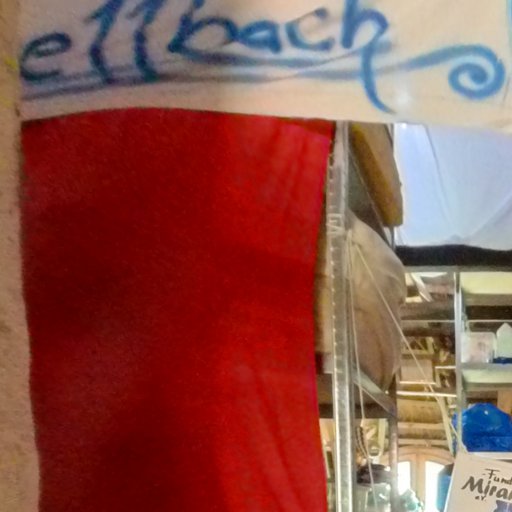 ellbach
Fund
Miran
e.V.